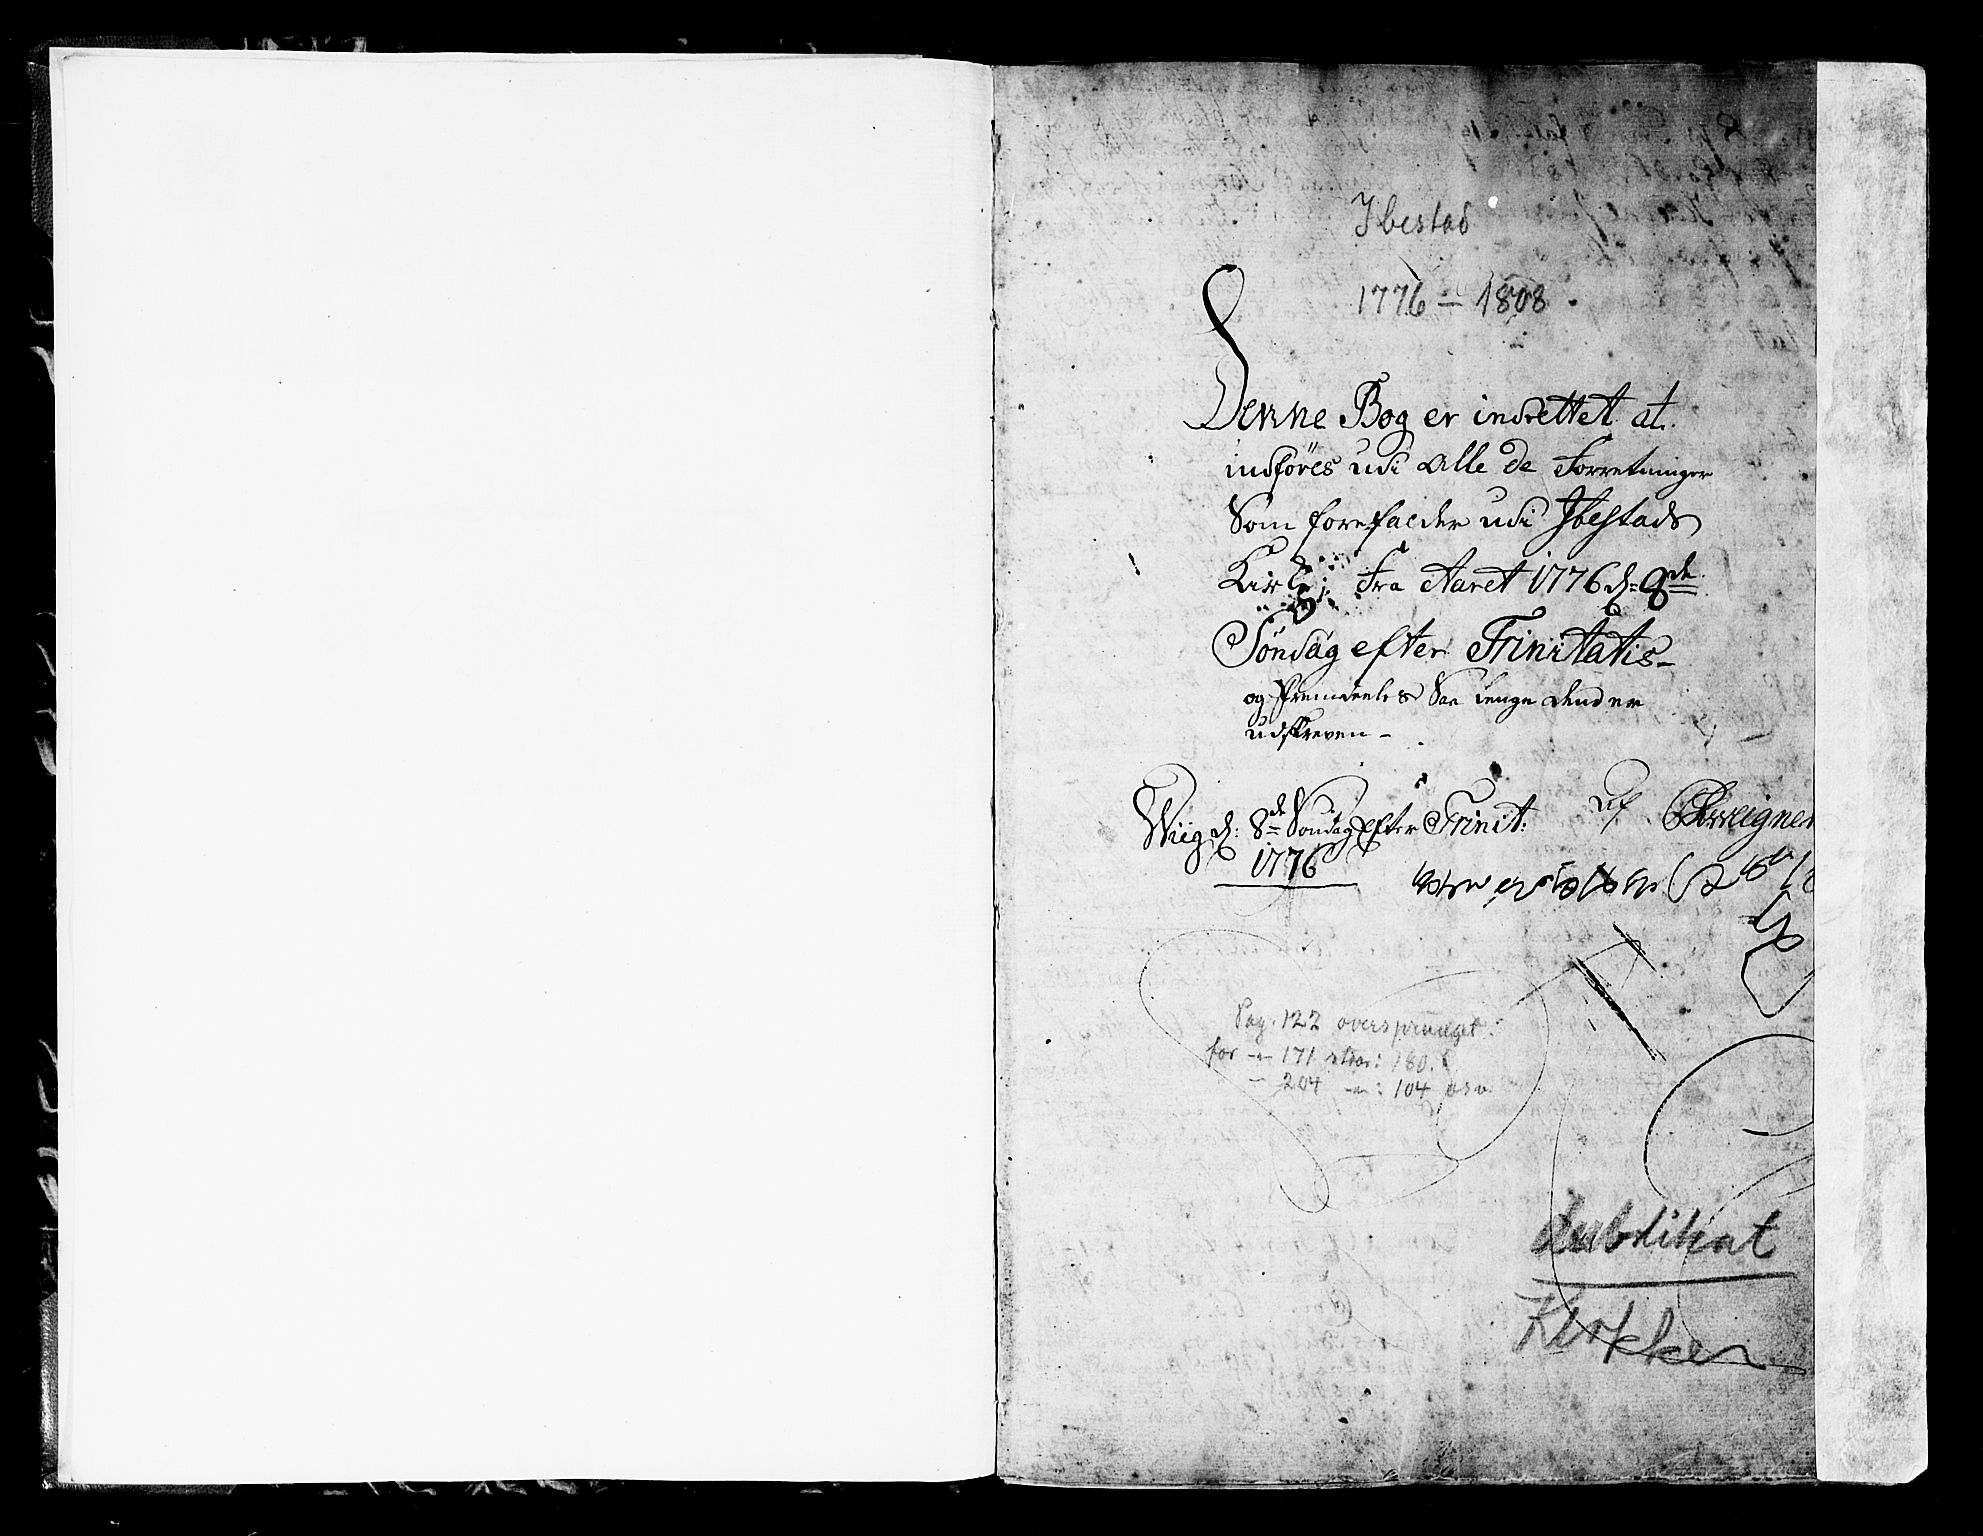 Ibestad
1776 — 1808.
Denne Bog er indrettet at
indföres udi alle de Forretninger
Som forefalder udi Ibestads
Kirke; fra Aaret 1776 d: 8de
Söndag efter Trinitatis-
og fremdeeles saa lenge dend er
udskreven -
Wiig d: 8de Söndag efter Trinit: af
1776
Pag. 122 oversprunget.
for — 171 staar: 180.
— 204 —: 104 osv.
dublikat
Klokker